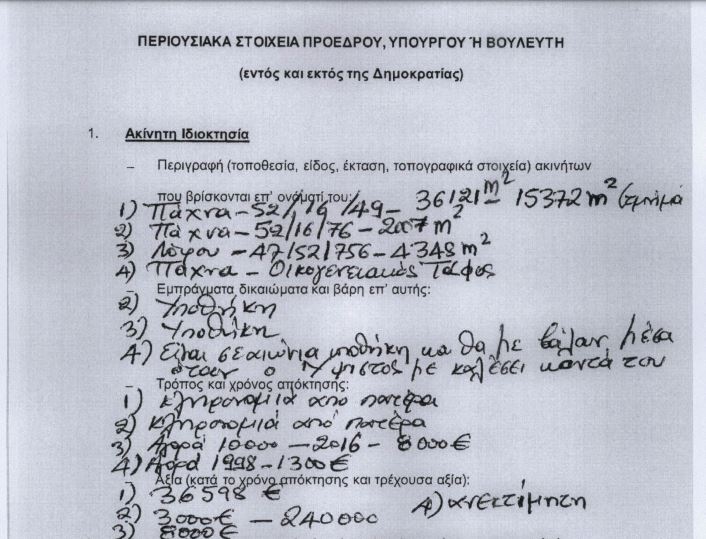 ΠΕΡΙΟΥΣΙΑΚΑ ΣΤΟΙΧΕΙΑ ΠΡΟΕΔΡΟΥ, ΥΠΟΥΡΓΟΥ Ή ΒΟΥΛΕΥΤΗ
(εντός και εκτός της Δημοκρατίας)
1. Ακίνητη Ιδιοκτησία
– Περιγραφή (τοποθεσία, είδος, έκταση, τοπογραφικά στοιχεία) ακινήτων
που βρίσκονται επ' ονόματί του:
1) Πάχνα – 52/16/49 – 36121 m² 15372 m² (τμήμα
2) Πάχνα – 52/16/76 – 2007 m²
3) Λόφου – 47/52/756 – 4348 m²
4) Πάχνα – Οικογενειακός Τάφος
– Εμπράγματα δικαιώματα και βάρη επ' αυτής:
2) Υποθήκη
3) Υποθήκη
4) Είναι σε αιώνια υποθήκη και θα με βάλουν μέσα
όταν ο Ύψιστος με καλέσει κοντά του
– Τρόπος και χρόνος απόκτησης:
1) κληρονομιά από πατέρα
2) κληρονομιά από πατέρα
3) Αγορά 10000 – 2016 – 8000€
4) Αγορά 1998 – 1300€
Αξία (κατά το χρόνο απόκτησης και τρέχουσα αξία):
1) 36598 €
4) ανεκτίμητη
2) 3000€ – 240000
3) 8000€